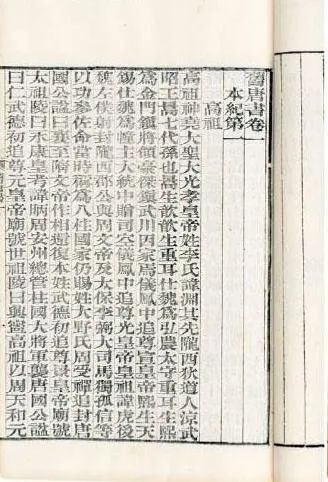 舊唐書卷一
本紀第一
高祖
高祖神堯大聖大光孝皇帝姓李氏諱淵其先隴西狄道人涼武
昭王暠七代孫也暠生歆歆生重耳仕魏爲弘農太守重耳生熙
爲金門鎮將領豪傑鎮武川因家焉儀鳳中追尊宣皇帝熙生天
錫仕魏爲幢主大統中贈司空儀鳳中追尊光皇帝皇祖諱虎後
魏左僕射封隴西郡公與周文帝及太保李弼大司馬獨孤信等
以功參佐命當時稱爲八柱國家仍賜姓大野氏周受禪追封唐
國公諡曰襄至隋文帝作相還復本姓武德初追尊景皇帝廟號
太祖陵曰永康皇考諱昞周安州總管柱國大將軍襲唐國公諡
曰仁武德初追尊元皇帝廟號世祖陵曰興寧高祖以周天和元